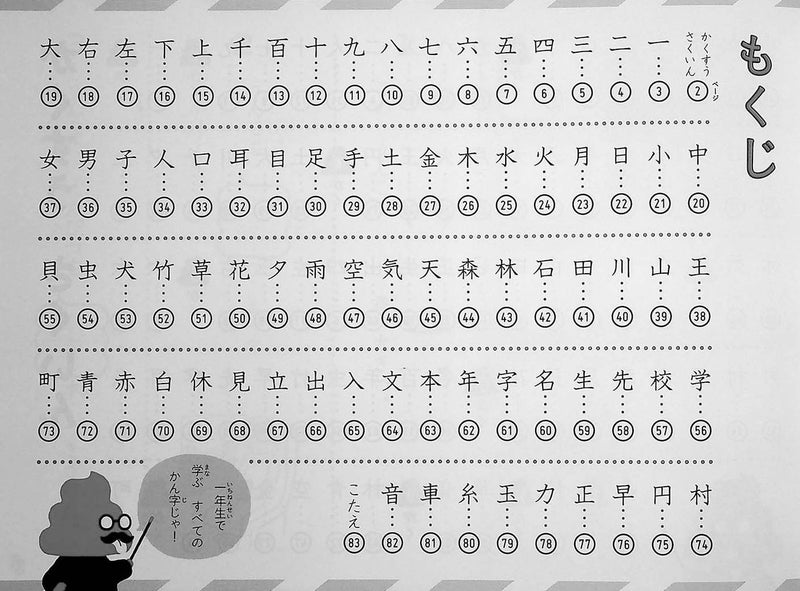 もくじ
かくすう
さくいん
ページ
② 一③ 二④ 三⑤ 四⑥ 五⑦ 六⑧ 七⑨ 八⑩ 九⑪ 十⑫ 百⑬ 千⑭ 上⑮ 下⑯ 左⑰ 右⑱ 大⑲
中⑳ 小㉑ 日㉒ 月㉓ 火㉔ 水㉕ 木㉖ 金㉗ 土㉘ 手㉙ 足㉚ 目㉛ 耳㉜ 口㉝ 人㉞ 子㉟ 男㊱ 女㊲
王㊳ 山㊴ 川㊵ 田㊶ 石㊷ 林㊸ 森㊹ 天㊺ 気㊻ 空㊼ 雨㊽ 夕㊾ 花㊿ 草51 竹52 犬53 虫54 貝55
学56 校57 先58 生59 名60 字61 年62 本63 文64 入65 出66 立67 見68 休69 白70 赤71 青72 町73
村74 円75 早76 正77 力78 玉79 糸80 車81 音82 こたえ83
いちねんせい
一年生で
まな
学ぶ すべての
じ
かん字じゃ！